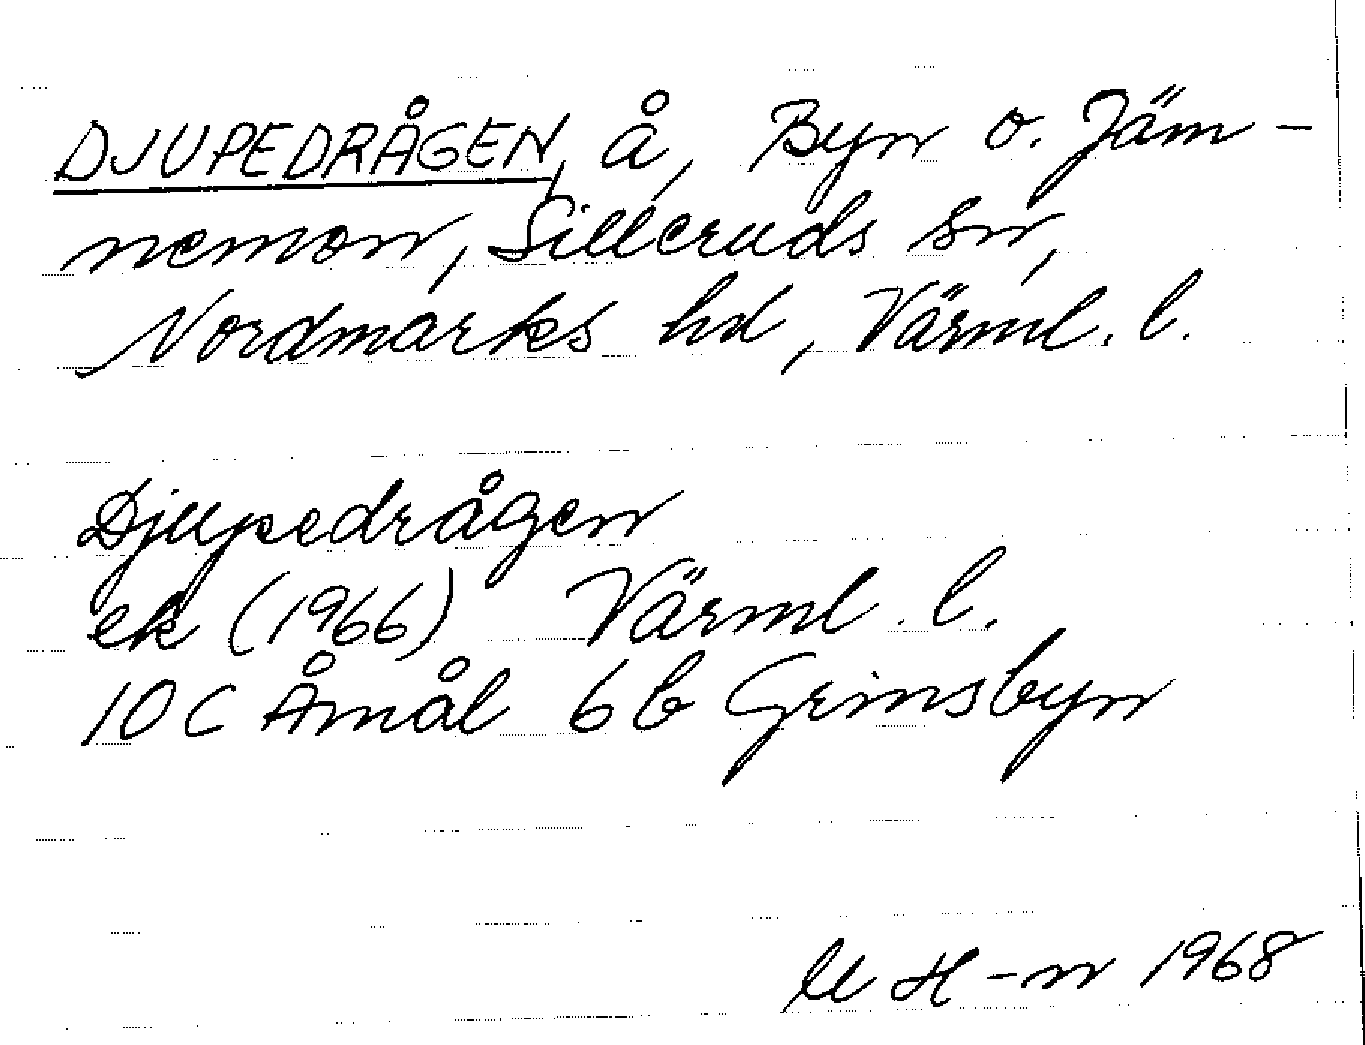 DJUPEDRÅGEN, å, Byn o. Jäm-
nemon, Silleruds sn,
Nordmarks hd, Värml. l.
Djupedrågen
ek (1966) Värml. l.
10 C Åmål 6b Grinsbyn
U H-n 1968